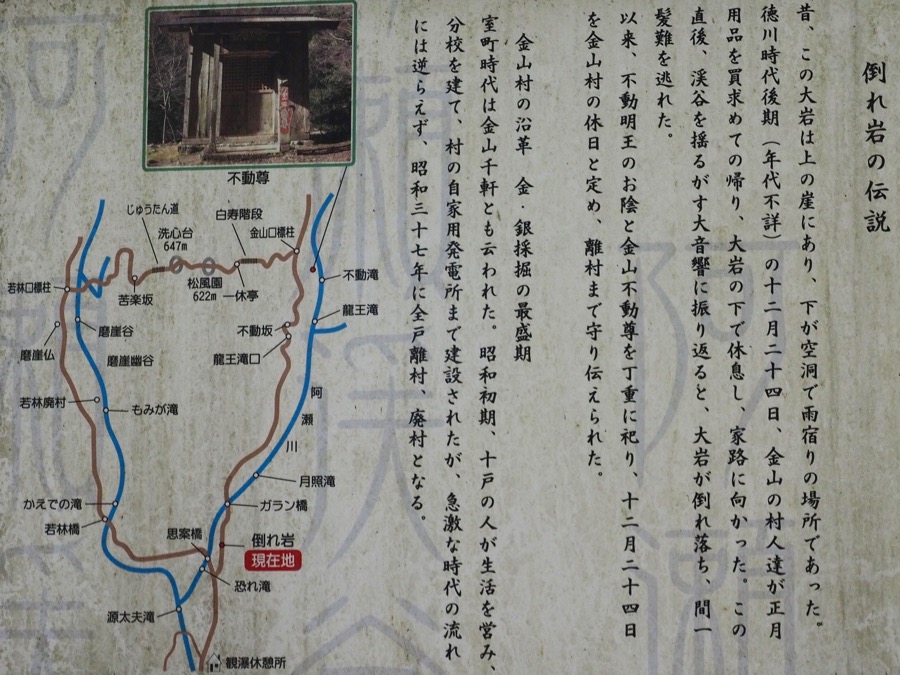 倒れ岩の伝説
昔、この大岩は上の崖にあり、下が空洞で雨宿りの場所であった。
徳川時代後期（年代不詳）の十二月二十四日、金山の村人達が正月
用品を買求めての帰り、大岩の下で休息し、家路に向かった。この
直後、渓谷を揺るがす大音響に振り返ると、大岩が倒れ落ち、間一
髪難を逃れた。
以来、不動明王のお陰と金山不動尊を丁重に祀り、十二月二十四日
を金山村の休日と定め、離村まで守り伝えられた。
金山村の沿革　金・銀採掘の最盛期
室町時代は金山千軒とも云われた。昭和初期、十戸の人が生活を営み、
分校を建て、村の自家用発電所まで建設されたが、急激な時代の流れ
には逆らえず、昭和三十七年に全戸離村、廃村となる。
不動尊
じゅうたん道
洗心台
647m
白寿階段
金山口標柱
若林口標柱
苦楽坂
松風園
622m
一休亭
不動滝
龍王滝
磨崖仏
磨崖谷
磨崖幽谷
不動坂
龍王滝口
若林廃村
もみが滝
阿瀬川
月照滝
かえでの滝
ガラン橋
若林橋
思案橋
倒れ岩
現在地
恐れ滝
源太夫滝
観瀑休憩所